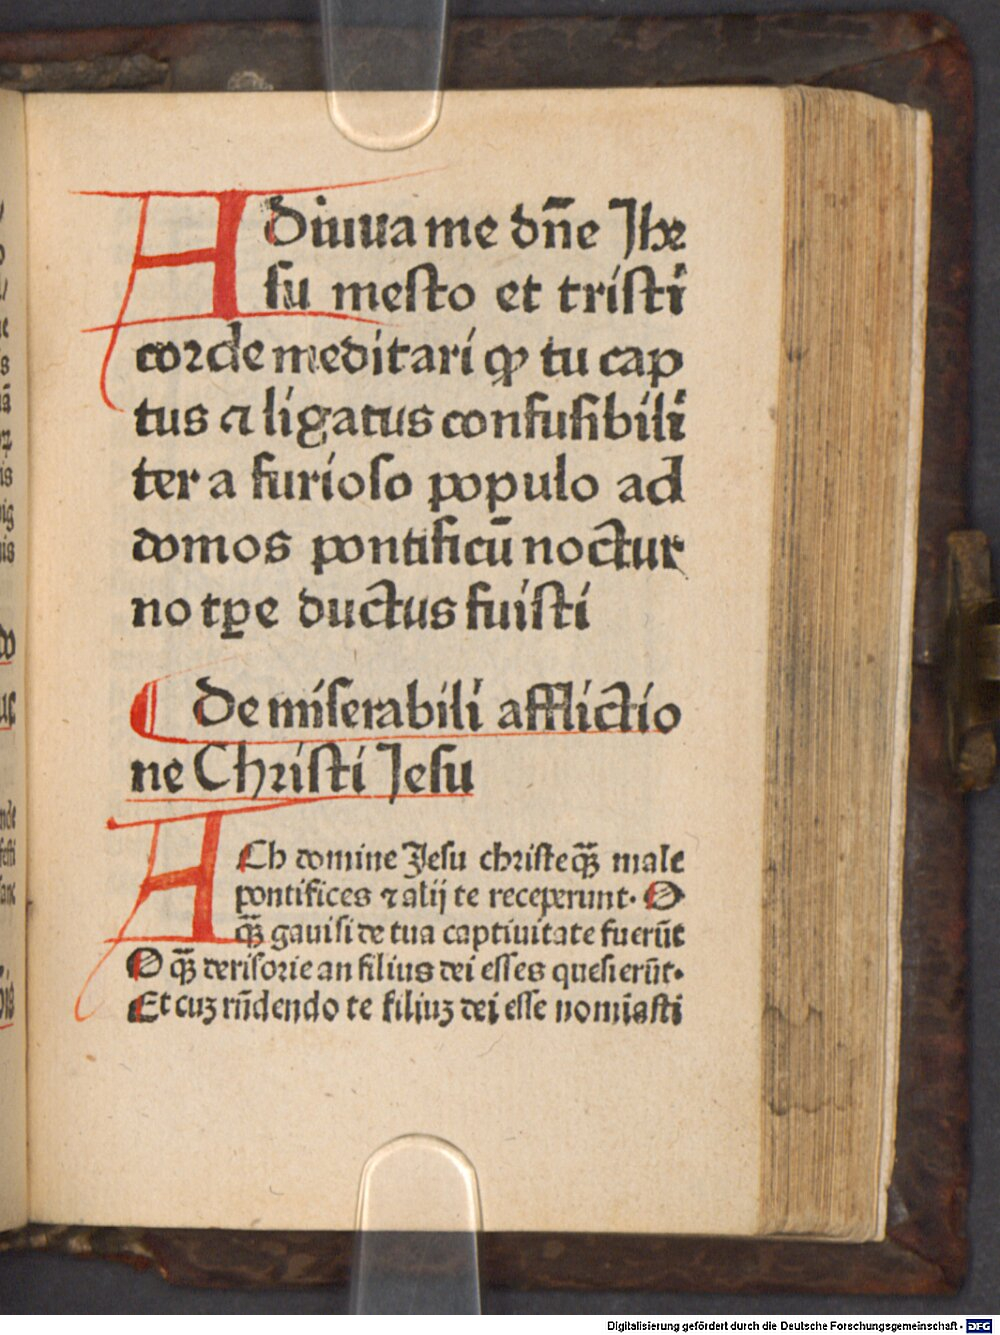 Adiuua me dn̄e Jhe
su mesto et tristi
corde meditari ꝙ tu cap
tus ⁊ ligatus confusibili
ter a furioso populo ad
domos pontificū noctur
no tꝑe ductus fuisti
¶ De miserabili afflictio
ne Christi Jesu
ACh domine Jesu christe qȝ̄ male
pontifices ⁊ alij te receperunt. O
qȝ̄ gauisi de tua captiuitate fuerūt
O qȝ̄ derisorie an filius dei esses quesierūt.
Et cuȝ rn̄dendo te filiuȝ dei esse nomiasti
Digitalisierung gefördert durch die Deutsche Forschungsgemeinschaft - DFG